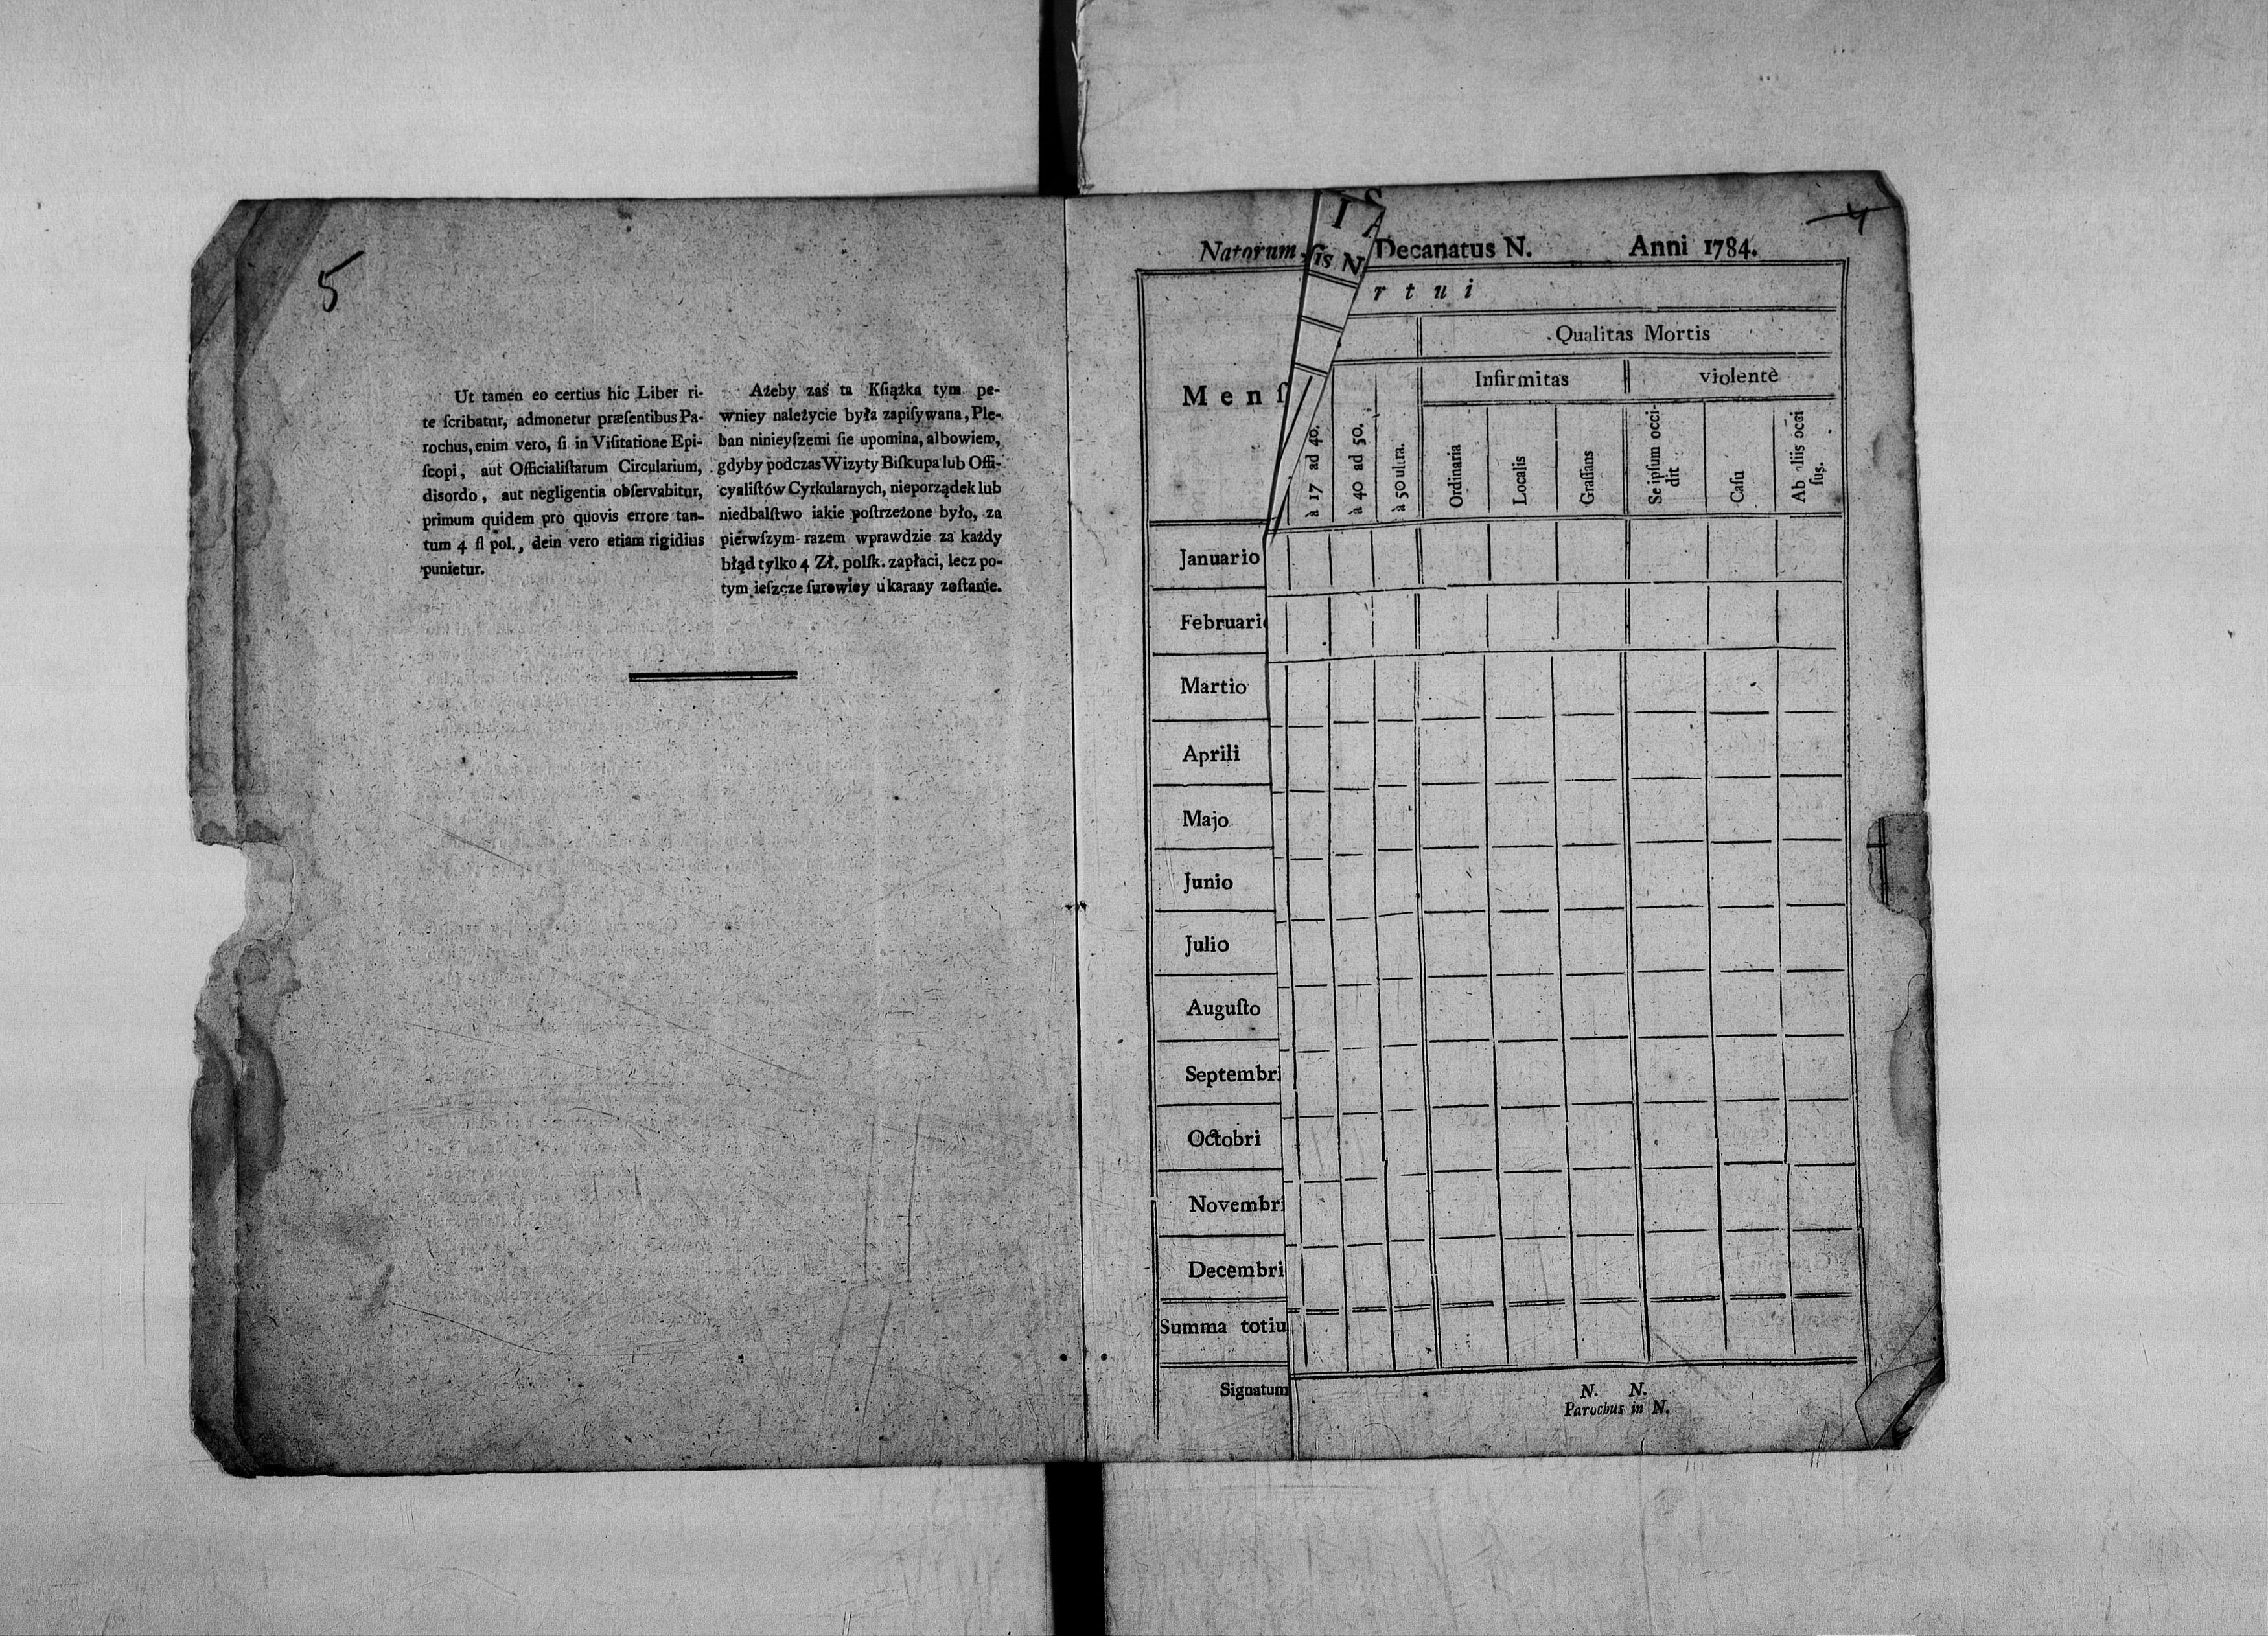 5
Ut tamen eo certius hic Liber ri-
te ſcribatur, admonetur præſentibus Pa-
rochus, enim vero, ſi in Viſitatione Epi-
ſcopi, aut Officialiſtarum Circularium,
disordo, aut negligentia obſervabitur,
primum quidem pro quovis errore tan-
tum 4 fl pol., dein vero etiam rigidius
punietur.
Ażeby zaś ta Kſiążka tym pe-
wniey należycie była zapiſywana, Ple-
ban ninieyſzemi ſie upomina, albowiem,
gdyby podczas Wizyty Biſkupa lub Offi-
cyaliſtów Cyrkularnych, nieporządek lub
niedbalſtwo iakie poſtrzeżone było, za
pierwſzym razem wprawdzie za każdy
błąd tylko 4 Zł. polſk. zapłaci, lecz po-
tym ieſzcze ſurowiey ukarany zoſtanie.
4
Natorum ſis N Decanatus N. Anni 1784.
r t u i
Qualitas Mortis
Menſ
Infirmitas violentè
à 17 ad 40.
à 40 ad 50.
à 50 ultra.
Ordinaria
Localis
Graſſans
Se ipſum occi-
dit
Caſu
Ab aliis occi
ſus.
Januario
Februario
Martio
Aprili
Majo
Junio
Julio
Auguſto
Septembri
Octobri
Novembri
Decembri
Summa totiu
Signatum
N. N.
Parochus in N.